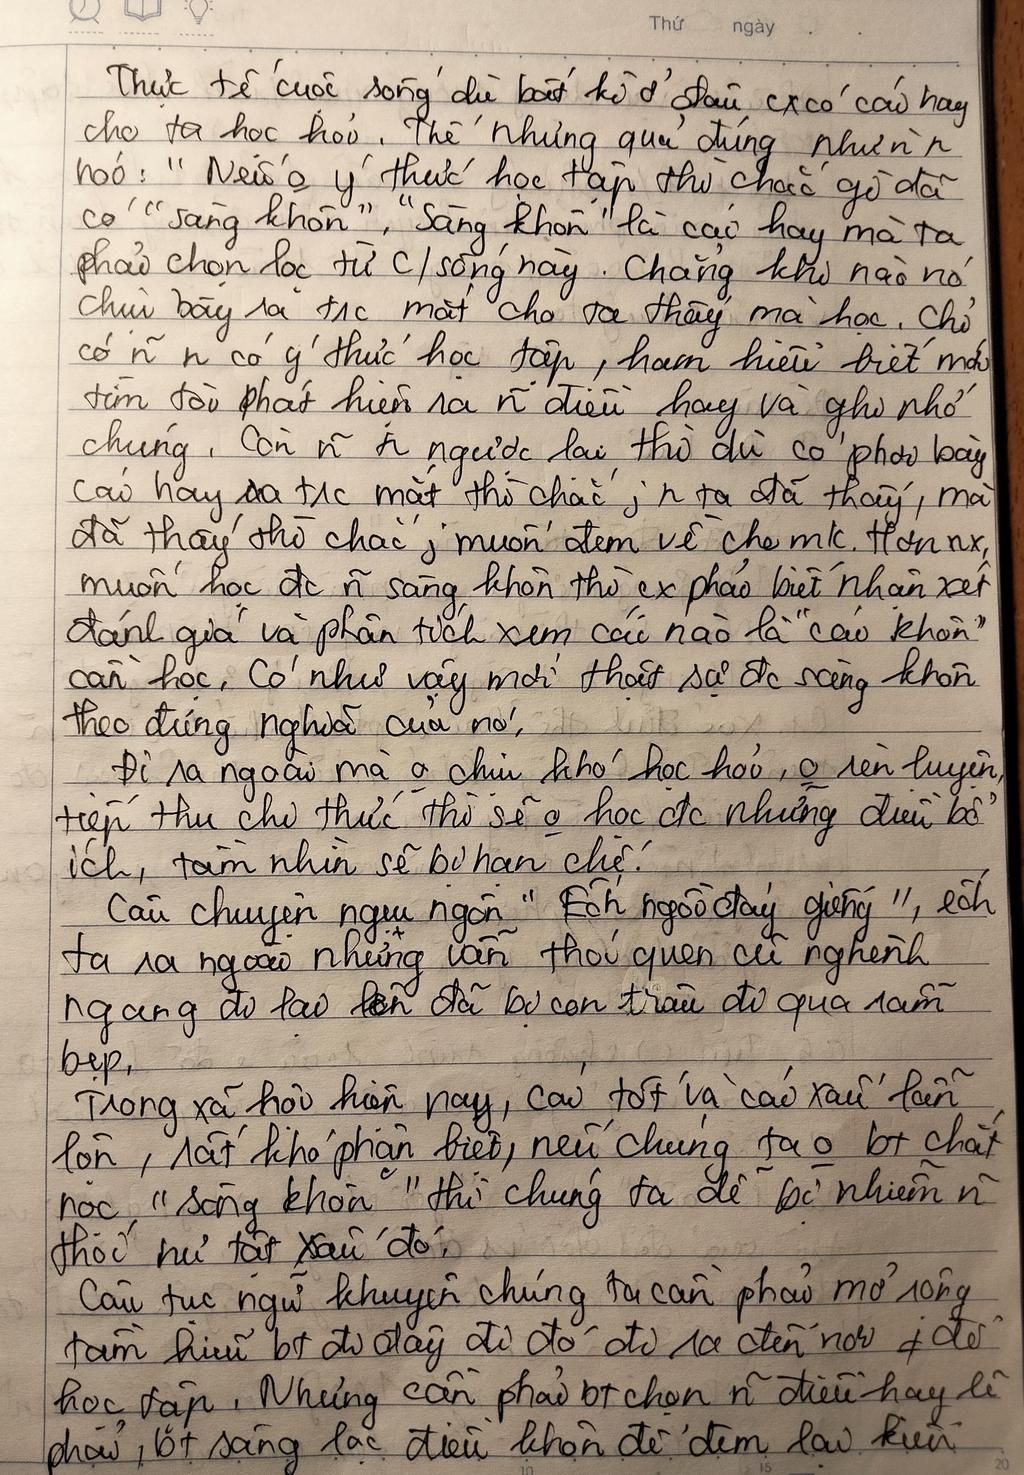 Thứ ngày
Thực tế cuộc sống dù bất kì ở đâu cx có cái hay
cho ta học hỏi. Thế nhưng quả đúng như ñ n
nói: " Nếu o ý thức học tập thì chắc gì đã
có "sàng khôn", "Sàng khôn" là cái hay mà ta
phải chọn lọc từ c/sống này. Chẳng khi nào nó
chìu bày ra trc mắt cho ta thấy mà học. Chỉ
có ñ n có ý thức học tập, ham hiểu biết mới
tìm tòi phát hiện ra ñ điều hay và ghi nhớ
chúng. Còn ñ n ngược lại thì dù có phơi bày
cái hay ra trc mắt thì chắc j n ta đã thấy, mà
đã thấy thì chắc j muốn đem về cho mk. Hơn nx,
muốn học đc ñ sàng khôn thì cx phải biết nhận xét
đánh giá và phân tích xem cái nào là "cái khôn"
cần học. Có như vậy mới thật sự đc sàng khôn
theo đúng nghĩa của nó.
Đi ra ngoài mà o chịu khó học hỏi, o rèn luyện,
tiếp thu chi thức thì sẽ o học đc những điều bổ
ích, tầm nhìn sẽ bị hạn chế.
Câu chuyện ngụ ngôn " Ếch ngồi đáy giếng", ếch
ta ra ngoài nhưng vẫn thói quen cũ nghênh
ngang đi lại lên đã bị con trâu đi qua rẫm
bẹp.
Trong xã hội hiện nay, cái tốt và cái xấu lẫn
lộn, rất khó phân biệt, nếu chúng ta o bt chắt
nọc "sàng khôn" thì chúng ta dễ bị nhiễm ñ
thói hư tật xấu đó.
Câu tục ngữ khuyên chúng ta cần phải mở rộng
tầm hiểu bt đi đây đi đó đi ra đến nơi để
học tập. Nhưng cần phải bt chọn ñ điều hay lẽ
phải, bt sàng lọc điều khôn để đem lại kiến
10 15 20